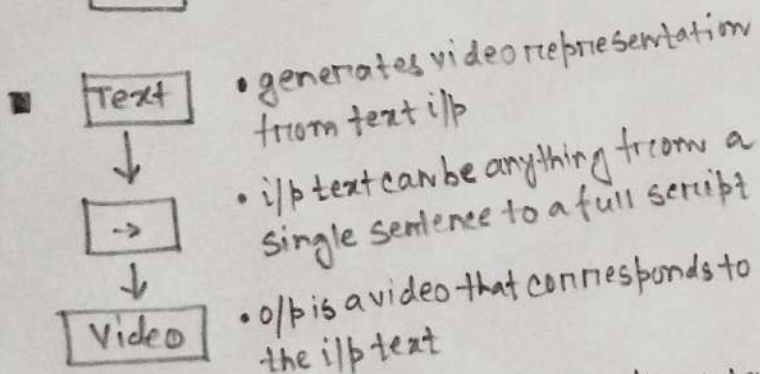 Text
• generates video representation
from text i/p
• i/p text can be anything from a
->
single sentence to a full script
Video
• o/p is a video that corresponds to
the i/p text